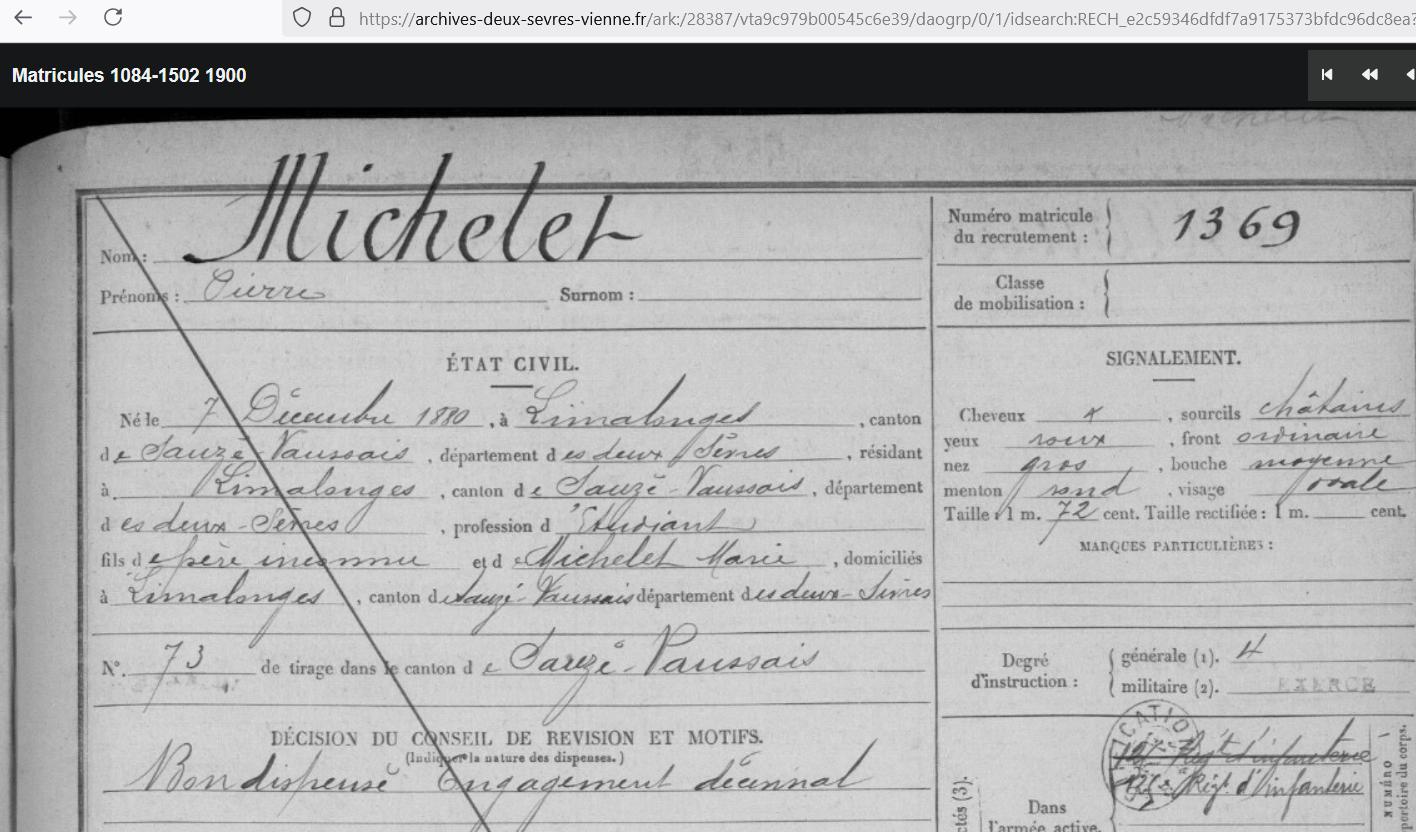 https://archives-deux-sevres-vienne.fr/ark:/28387/vta9c979b00545c6e39/daogrp/0/1/idsearch:RECH_e2c59346dfdf7a9175373bfdc96dc8ea?
Matricules 1084-1502 1900
Nom : Michelet
Prénoms : Pierre Surnom :
Numéro matricule du recrutement : 1369
Classe de mobilisation :
ÉTAT CIVIL.
Né le 7 Décembre 1880, à Limalonges, canton
de Sauzé-Vaussais, département des deux Sèvres, résidant
à Limalonges, canton de Sauzé-Vaussais, département
des deux-Sèvres, profession d'Etudiant
fils de père inconnu et de Michelet Marie, domiciliés
à Limalonges, canton de Sauzé-Vaussais département des deux-Sèvres
N°. 73 de tirage dans le canton de Sauzé-Vaussais
DÉCISION DU CONSEIL DE REVISION ET MOTIFS.
(Indiquer la nature des dispenses.)
Bon dispensé Engagement décennal
SIGNALEMENT.
Cheveux x, sourcils châtains
yeux roux, front ordinaire
nez gros, bouche moyenne
menton rond, visage ovale
Taille : 1 m. 72 cent. Taille rectifiée : 1 m. cent.
MARQUES PARTICULIÈRES :
Degré d'instruction :
générale (1). 4
militaire (2). EXERCÉ
Régt d'infanterie
Régt d'infanterie
Dans
l'armée active.
NUMÉRO